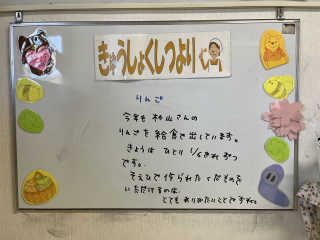 きゅうしょくしつより
りんご
今年も 杉山さんの
りんごを 給食で出しています。
きょうは ひとり 1/6きれ ずつ
です。
そえひで 作られた くだものを
いただけるのは、
とても ありがたいことですね。